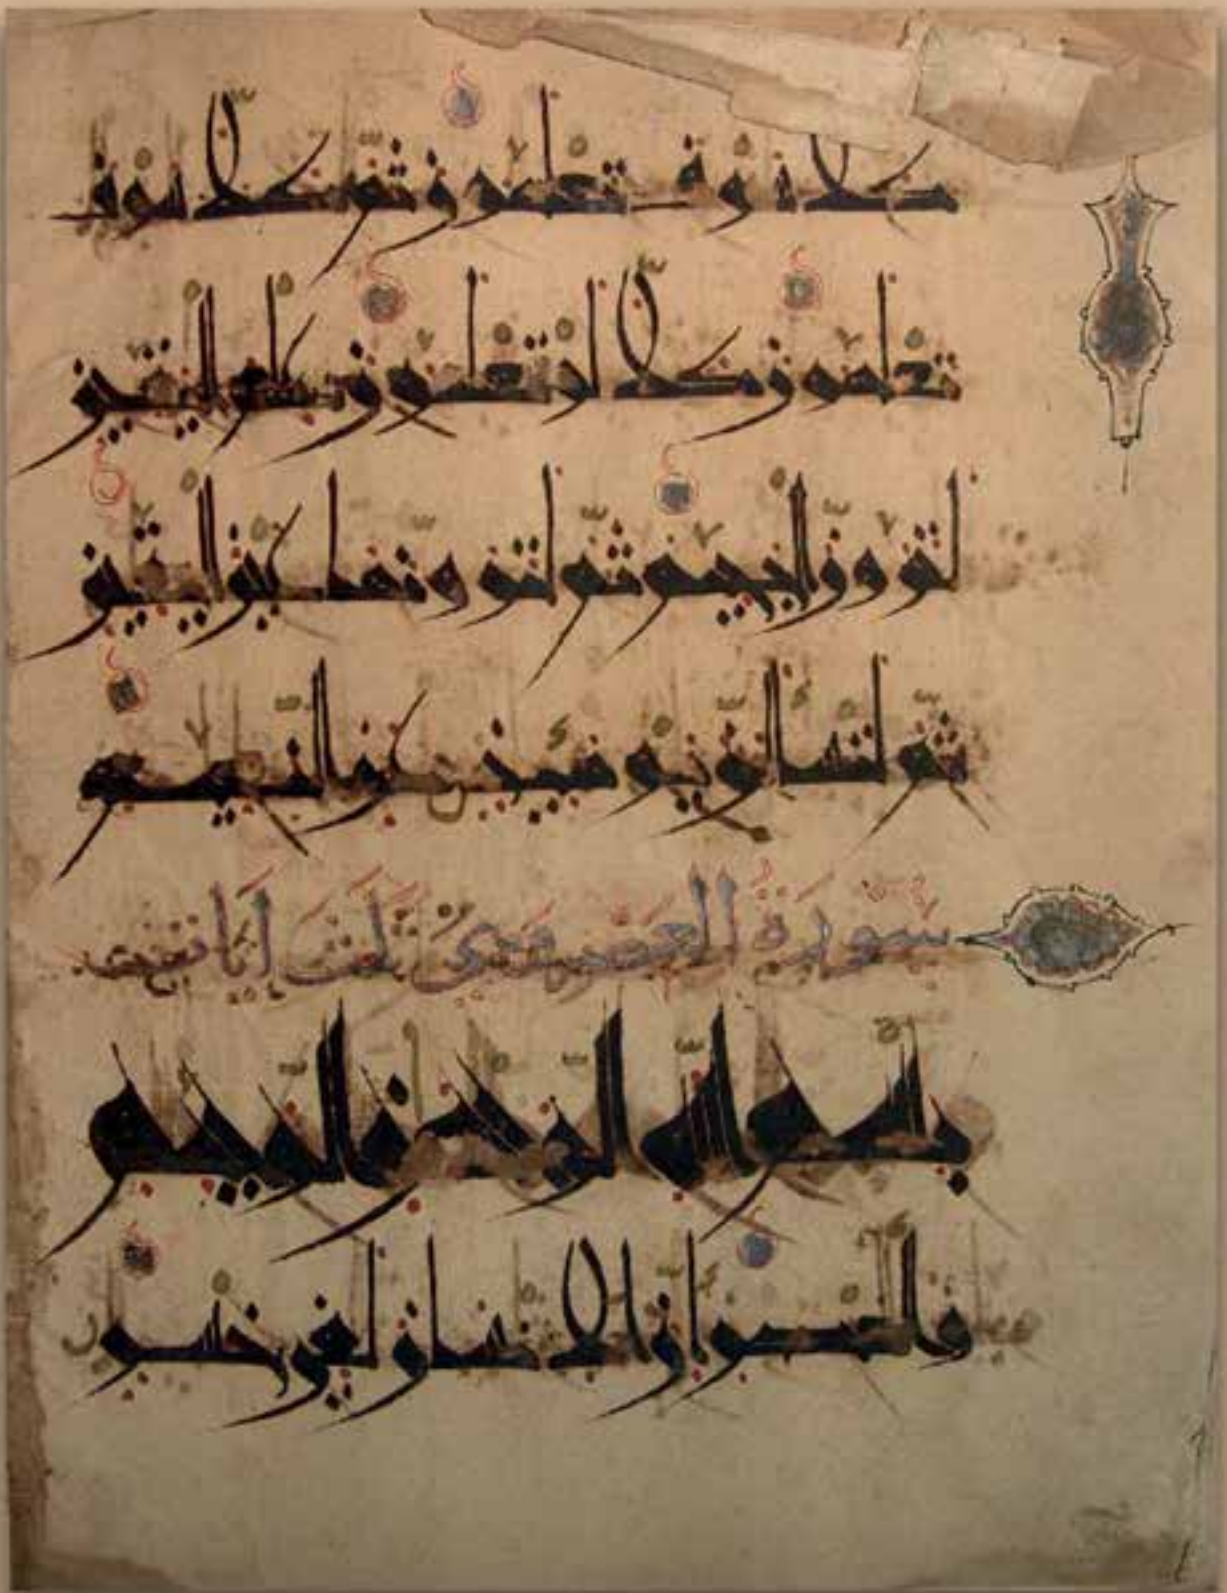 كلا سوف تعلمون ثم كلا سوف
تعلمون كلا لو تعلمون علم اليقين
لترون الجحيم ثم لترونها عين اليقين
ثم لتسئلن يومئذ عن النعيم
سورة العصر وهي ثلث آيات
بسم الله الرحمن الرحيم
والعصر إن الإنسان لفي خسر